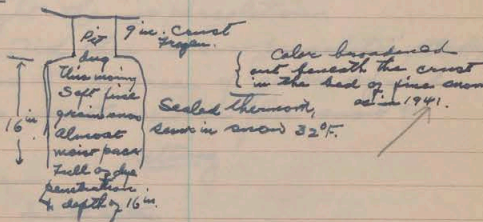 Pit
dug
This morning
Soft fine
grain snow
Almost
moist pack
Full of dye
penetration
& depth of 16 in.
16 in
9 in. Crust
Frozen.
Sealed thermom,
snow in snow 32°F.
Color broadened
out beneath the crust
in the bed of fine snow
as in 1941.